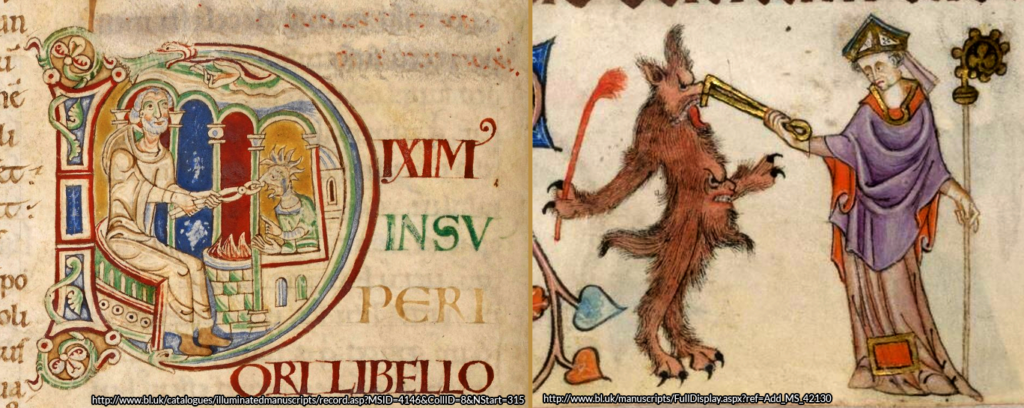 DIXIM
INSV
PERI
ORI LIBELLO
http://www.bl.uk/catalogues/illuminatedmanuscripts/record.asp?MSID=4146&CollID=8&NStart=315
http://www.bl.uk/manuscripts/FullDisplay.aspx?ref=Add_MS_42130